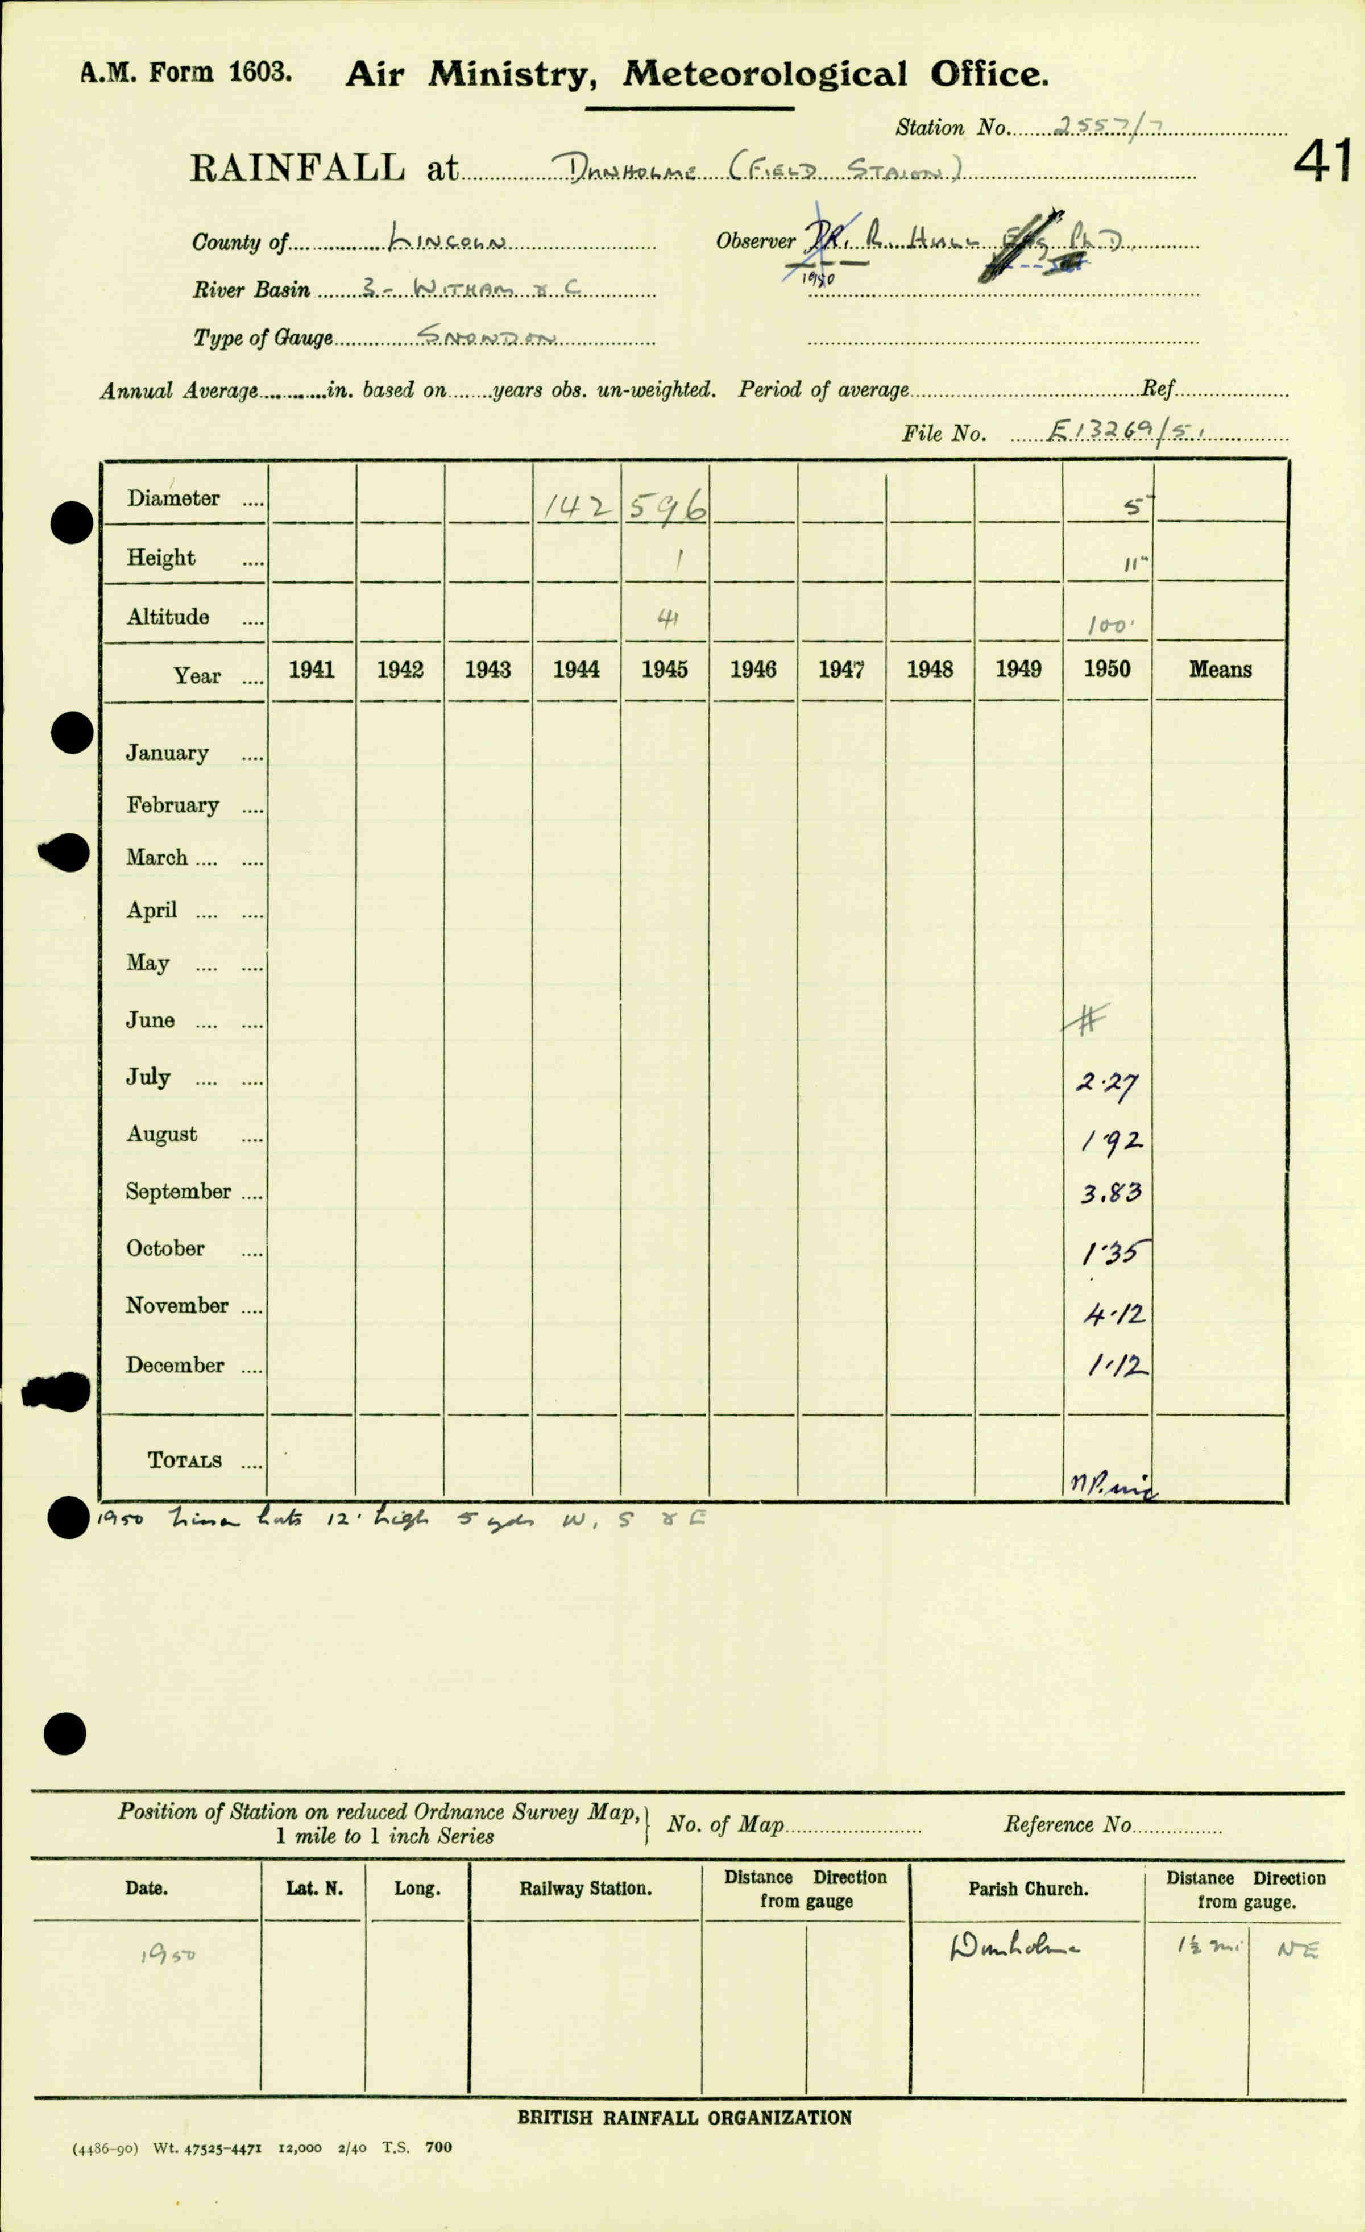 A.M. Form 1603. Air Ministry, Meteorological Office.
Station No. 2557/7
41
RAINFALL at DUNHOLME (FIELD STAION)
County of LINCOLN Observer DR. R. HULL Esq PhD
1950
River Basin 3 - WITHAM & C
Type of Gauge SNOWDON
Annual Average in. based on years obs. un-weighted. Period of average Ref
File No. E13269/51
Diameter 142 596 5"
Height 1 11"
Altitude 41 100'
Year 1941 1942 1943 1944 1945 1946 1947 1948 1949 1950 Means
January
February
March
April
May
June #
July 2.27
August 1.92
September 3.83
October 1.35
November 4.12
December 1.12
TOTALS
1950 huts 12' high 5 yds W, S & E
Position of Station on reduced Ordnance Survey Map, 1 mile to 1 inch Series } No. of Map Reference No
Date. Lat. N. Long. Railway Station. Distance Direction from gauge Parish Church. Distance Direction from gauge.
1950 Dunholme 1½ mi NE
BRITISH RAINFALL ORGANIZATION
(4486-90) Wt. 47525-4471 12,000 2/40 T.S. 700